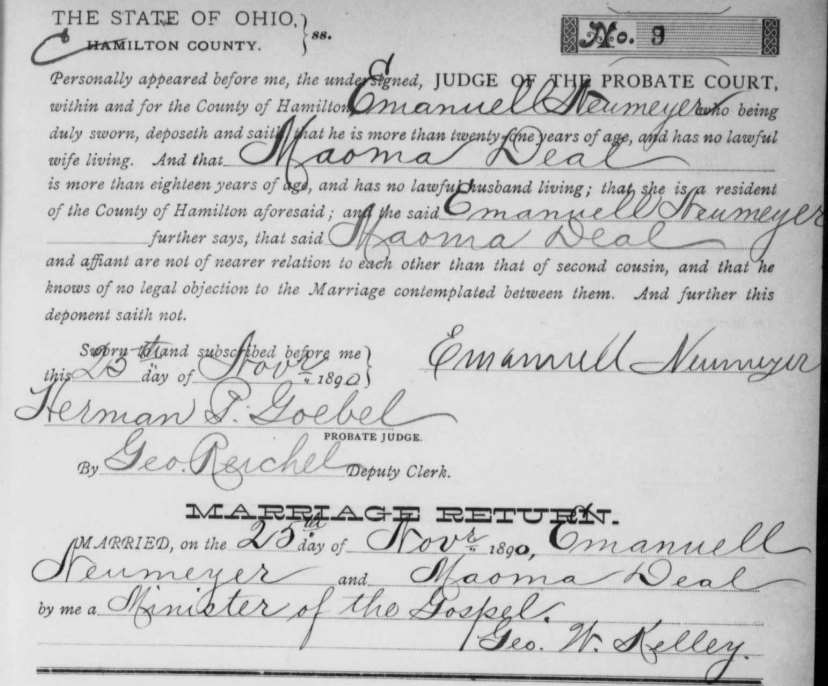 THE STATE OF OHIO, } ss.
HAMILTON COUNTY.
No. 9
Personally appeared before me, the undersigned, JUDGE OF THE PROBATE COURT,
within and for the County of Hamilton, Emanuell Neumeyer who being
duly sworn, deposeth and saith, that he is more than twenty-one years of age, and has no lawful
wife living. And that Maoma Deal
is more than eighteen years of age, and has no lawful husband living; that she is a resident
of the County of Hamilton aforesaid; and the said Emanuell Neumeyer
further says, that said Maoma Deal
and affiant are not of nearer relation to each other than that of second cousin, and that he
knows of no legal objection to the Marriage contemplated between them. And further this
deponent saith not.
Sworn to and subscribed before me
this 25th day of Novr 1890 }
Emanuell Neumeyer
Herman P. Goebel
PROBATE JUDGE.
By Geo. Reichel Deputy Clerk.
MARRIAGE RETURN.
MARRIED, on the 25th day of Novr 1890, Emanuell
Neumeyer and Maoma Deal
by me a Minister of the Gospel.
Geo. W. Kelley.